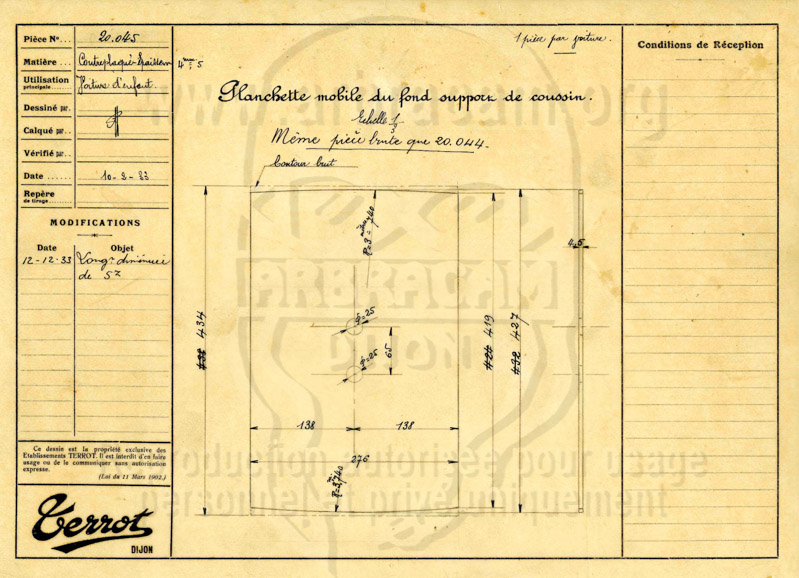 Pièce No... 20.045
Matière... Contreplaqué
4 mm 5
Utilisation principale... Voiture d'enfant
Dessiné par..
Calqué par...
Vérifié par...
Date... 10-3-33
Repère de tirage...
MODIFICATIONS
Date Objet
12-12-33 Longr diminuée
de 5
1 pièce par voiture.
Planchette mobile du fond support de coussin.
Echelle 1/3
Même pièce brute que 20.044.
Contour brut
4,5
434
419
427
65
φ=25
φ=25
138
138
276
Conditions de Réception
Ce dessin est la propriété exclusive des
Etablissements TERROT. Il est interdit d'en faire
usage ou de le communiquer sans autorisation
expresse.
(Loi du 11 Mars 1902.)
Terrot
DIJON
ARBRACAM
DIJON
reproduction autorisée pour usage
personnel et privé uniquement